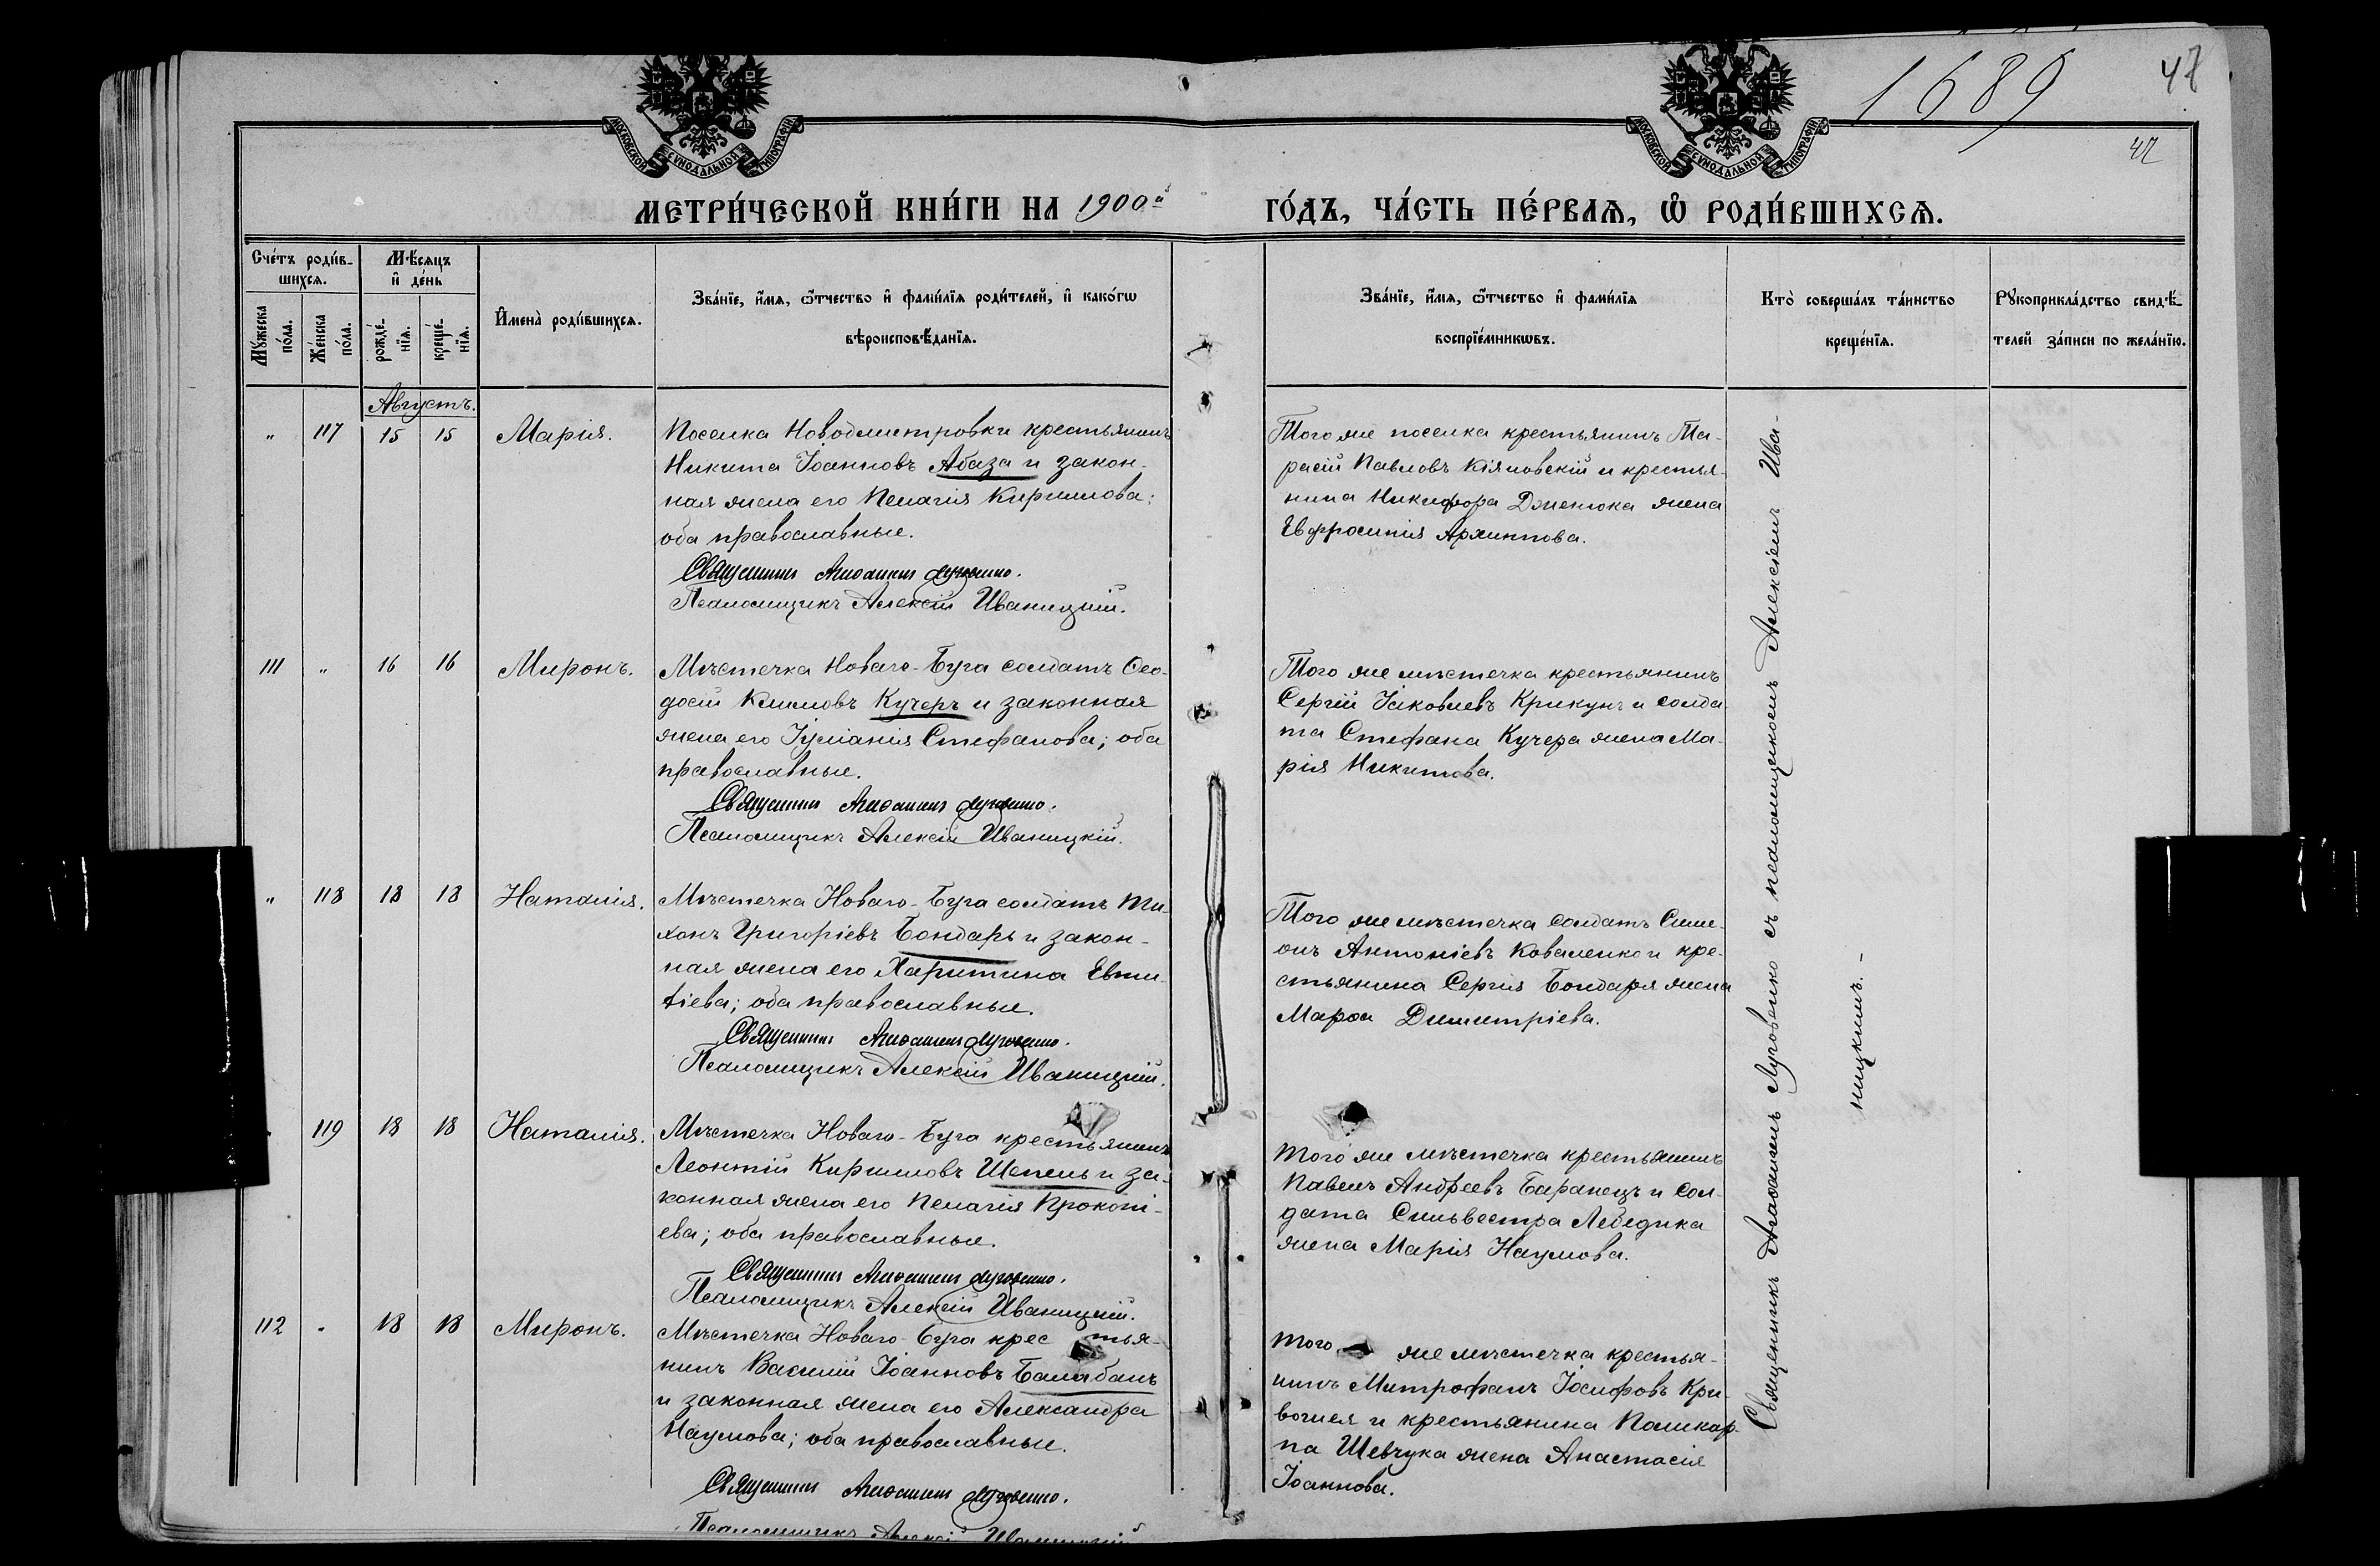 1689
47
47
МОСКОВСКОЙ СѴНОДАЛЬНОЙ ТИПОГРАФІИ
МОСКОВСКОЙ СѴНОДАЛЬНОЙ ТИПОГРАФІИ
МЕТРИ́ЧЕСКОЙ КНИ́ГИ НА 1900й
ГО́ДЪ, ЧА́СТЬ ПЕ́РВАѦ, Ѡ҆ РОДИ́ВШИХСѦ.
Сче́тъ роди́в-
шихсѧ.
Мꙋ́жеска
по́ла.
Же́нска
по́ла.
Мѣ́сѧцъ
и҆ де́нь
рожде́-
нїѧ.
креще́-
нїѧ.
И҆мена̀ роди́вшихсѧ.
Зва́нїе, и҆́мѧ, ѻ҆́тчество и҆ фами́лїѧ роди́телей, и҆ како́гѡ
вѣроисповѣ́данїѧ.
Зва́нїе, и҆́мѧ, ѻ҆́тчество и҆ фами́лїѧ
воспрїе́мникѡвъ.
Кто̀ соверша́лъ та́инство
креще́нїѧ.
Рꙋкоприкла́дство свидѣ́-
телей за́писи по жела́нїю.
Августъ.
" 117 15 15 Марія.
Поселка Новодмитровки крестьянинъ
Никита Іоанновъ Абаза и закон-
ная жена его Пелагія Кириллова;
оба православные.
Священникъ Агаѳангелъ Луговенко.
Псаломщикъ Алексій Иваницкій.
Того же поселка крестьянинъ Та-
расій Павловъ Кіяновскій и крестья-
нина Никифора Дженюка жена
Евфросинія Архиппова.
111 " 16 16 Миронъ.
Мѣстечка Новаго-Буга солдатъ Ѳео-
досій Климовъ Кучеръ и законная
жена его Іуліанія Стефанова; оба
православные.
Священникъ Агаѳангелъ Луговенко.
Псаломщикъ Алексій Иваницкій.
Того же мѣстечка крестьянинъ
Сергій Іаковлевъ Крикунъ и солда
та Стефана Кучера жена Ма-
рія Никитова.
" 118 18 18 Наталія.
Мѣстечка Новаго-Буга солдатъ Ти-
хонъ Григоріевъ Бондарь и закон-
ная жена его Харитина Евти-
хіева; оба православные.
Священникъ Агаѳангелъ Луговенко.
Псаломщикъ Алексій Иваницкій.
Того же мѣстечка солдатъ Симе-
онъ Антоніевъ Коваленко и кре-
стьянина Сергія Бондаря жена
Марѳа Димитріева.
119 18 18 Наталія.
Мѣстечка Новаго-Буга крестьянинъ
Леонтій Кирилловъ Шепель и за-
конная жена его Пелагія Прокопі-
ева; оба православные.
Священникъ Агаѳангелъ Луговенко.
Псаломщикъ Алексій Иваницкій.
Того же мѣстечка крестьянинъ
Павелъ Андреевъ Баранецъ и сол-
дата Сильвестра Лебедика
жена Марія Наумова.
112 " 18 18 Миронъ.
Мѣстечка Новаго-Буга крестья-
нинъ Василій Іоанновъ Балабанъ
и законная жена его Александра
Наумова; оба православные.
Священникъ Агаѳангелъ Луговенко.
Псаломщикъ Алексій Иваницкій
Того же мѣстечка крестья-
нинъ Митрофанъ Іосифовъ Кри-
вошея и крестьянина Поликар-
па Шевчука жена Анастасія
Іоаннова.
Священникъ Агаѳангелъ Луговенко съ псаломщикомъ Алексіемъ Ива-
ницкимъ.-